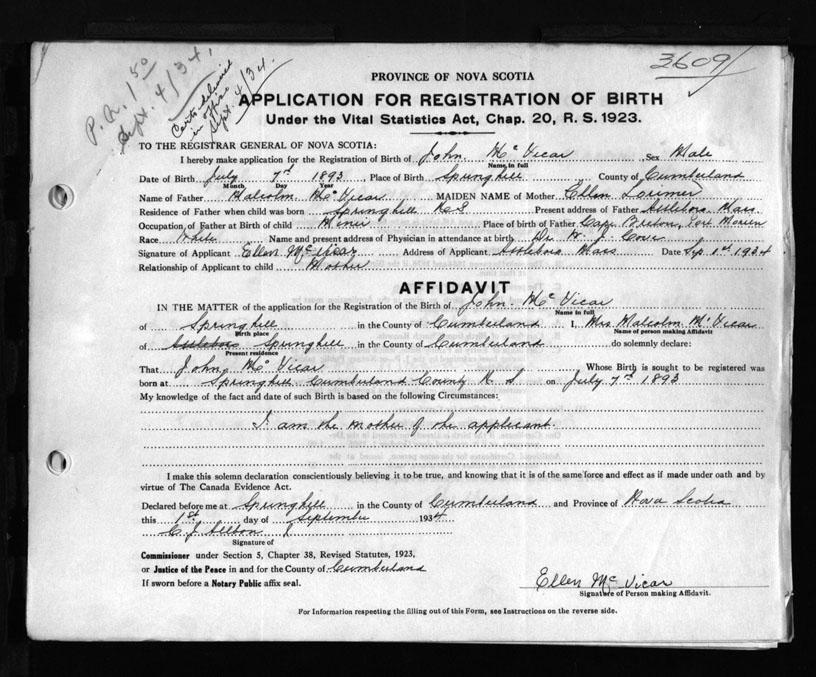 P. R. 1.50
Sept. 4/34.
Certs delivered
in office
Sept. 4/34.
3609
PROVINCE OF NOVA SCOTIA
APPLICATION FOR REGISTRATION OF BIRTH
Under the Vital Statistics Act, Chap. 20, R. S. 1923.
TO THE REGISTRAR GENERAL OF NOVA SCOTIA:
I hereby make application for the Registration of Birth of John Mc Vicar Sex Male
Name in full
Date of Birth July 7th 1893, Place of Birth Springhill County of Cumberland
Month Day Year
Name of Father Malcolm Mc Vicar MAIDEN NAME of Mother Ellen Lorimer
Residence of Father when child was born Springhill N.S Present address of Father Attleboro Mass.
Occupation of Father at Birth of child Miner Place of birth of Father Cape Breton, Port Morien
Race White Name and present address of Physician in attendance at birth Dr. W. J. Cove
Signature of Applicant Ellen Mc Vicar Address of Applicant Attleboro Mass Date Sep 1st 1934
Relationship of Applicant to child Mother
AFFIDAVIT
IN THE MATTER of the application for the Registration of the Birth of John Mc Vicar
Name in full
of Springhill in the County of Cumberland I, Mrs Malcolm Mc Vicar
Birth place Name of person making Affidavit
of Attleboro Springhill in the County of Cumberland do solemnly declare:
Present residence
That John Mc Vicar Whose Birth is sought to be registered was
born at Springhill Cumberland County N. S. on July 7th 1893
My knowledge of the fact and date of such Birth is based on the following Circumstances:
I am the mother of the applicant.
I make this solemn declaration conscientiously believing it to be true, and knowing that it is of the same force and effect as if made under oath and by
virtue of The Canada Evidence Act.
Declared before me at Springhill in the County of Cumberland and Province of Nova Scotia
this 1st day of September 1934
C. J. Allbon
Signature of
Commissioner under Section 5, Chapter 38, Revised Statutes, 1923,
or Justice of the Peace in and for the County of Cumberland
If sworn before a Notary Public affix seal.
Ellen Mc Vicar
Signature of Person making Affidavit.
For Information respecting the filling out of this Form, see Instructions on the reverse side.